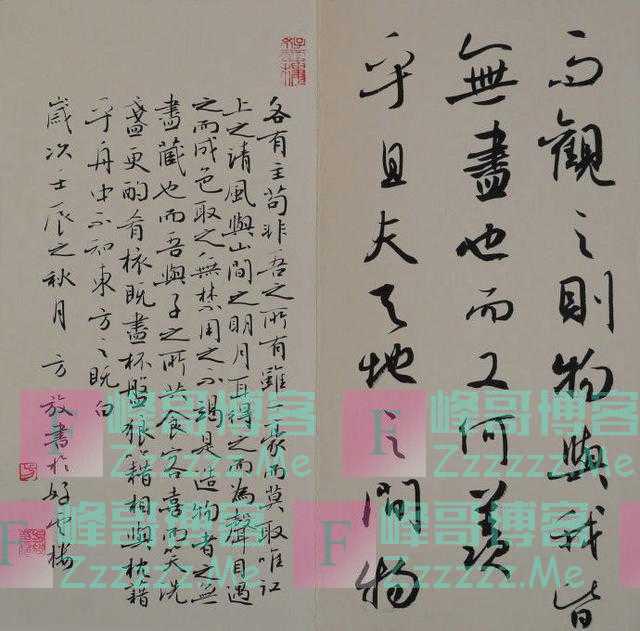 而觀之則物與我皆
無盡也而又何羨
乎且夫天地之間物
各有主苟非吾之所有雖一豪而莫取惟江
上之清風與山間之明月耳得之而為聲目遇
之而成色取之無禁用之不竭是造物者之無
盡藏也而吾與子之所共食客喜而笑洗
盞更酌肴核既盡杯盤狼藉相與枕藉
乎舟中不知東方之既白
歲次壬辰之秋月 方放書於好雲樓
F 峰哥博客
Zzzzzz.Me
F 峰哥博客
Zzzzzz.Me
F 峰哥博客
Zzzzzz.Me
F 峰哥博客
Zzzzzz.Me